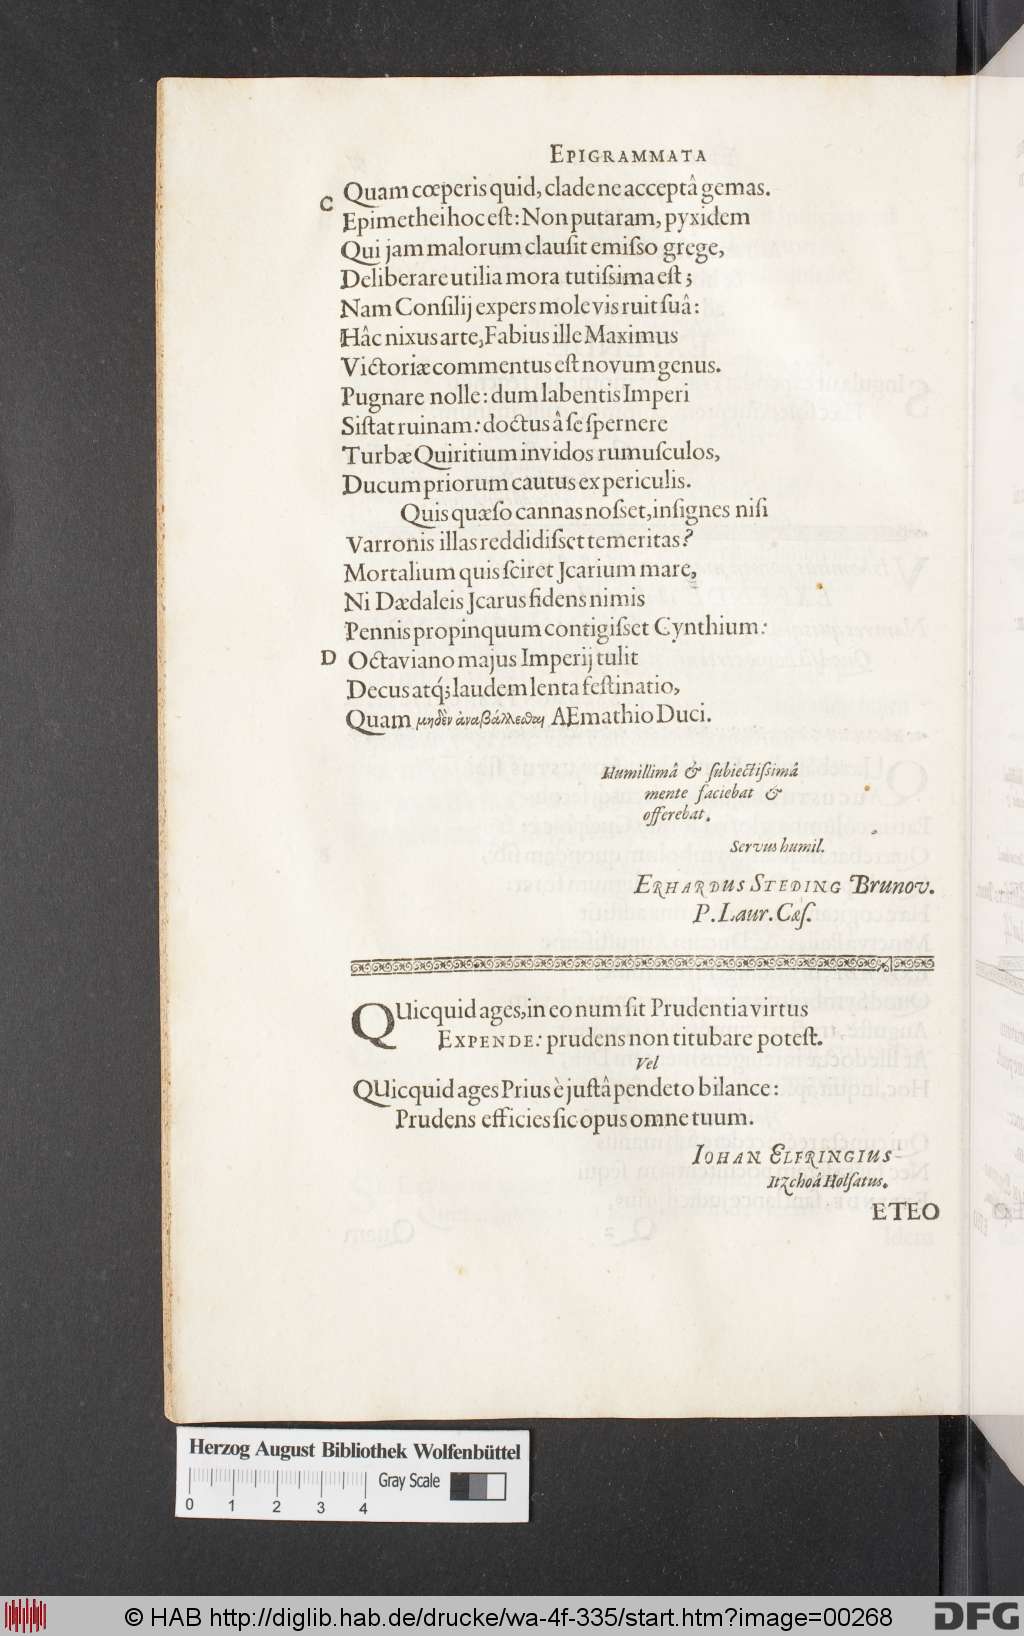 EPIGRAMMATA
C Quam cœperis quid, clade ne acceptâ gemas.
Epimethei hoc eſt: Non putaram, pyxidem
Qui jam malorum clauſit emiſso grege,
Deliberare utilia mora tutiſsima eſt;
Nam Conſilij expers mole vis ruit ſuâ:
Hâc nixus arte, Fabius ille Maximus
Victoriæ commentus eſt novum genus.
Pugnare nolle: dum labentis Imperi
Siſtat ruinam: doctus â ſe ſpernere
Turbæ Quiritium invidos rumuſculos,
Ducum priorum cautus ex periculis.
Quis quæſo cannas noſset, inſignes niſi
Varronis illas reddidiſset temeritas?
Mortalium quis ſciret Jcarium mare,
Ni Dædaleis Jcarus fidens nimis
Pennis propinquum contigiſset Cynthium:
D Octaviano majus Imperij tulit
Decus atq́; laudem lenta feſtinatio,
Quam μηδὲν ἀναβάλλεσθαι AEmathio Duci.
Humillimâ & ſubiectiſsimâ
mente faciebat &
offerebat.
Servus humil.
ERHARDUS STEDING Brunov.
P. Laur. Cæſ.
QUicquid ages, in eo num ſit Prudentia virtus
EXPENDE: prudens non titubare poteſt.
Vel
QUicquid ages Prius è juſtâ pendeto bilance:
Prudens efficies ſic opus omne tuum.
IOHAN ELFRINGIUS
Itzchoâ Holſatus.
ETEO
Herzog August Bibliothek Wolfenbüttel
Gray Scale
0 1 2 3 4
© HAB http://diglib.hab.de/drucke/wa-4f-335/start.htm?image=00268
DFG